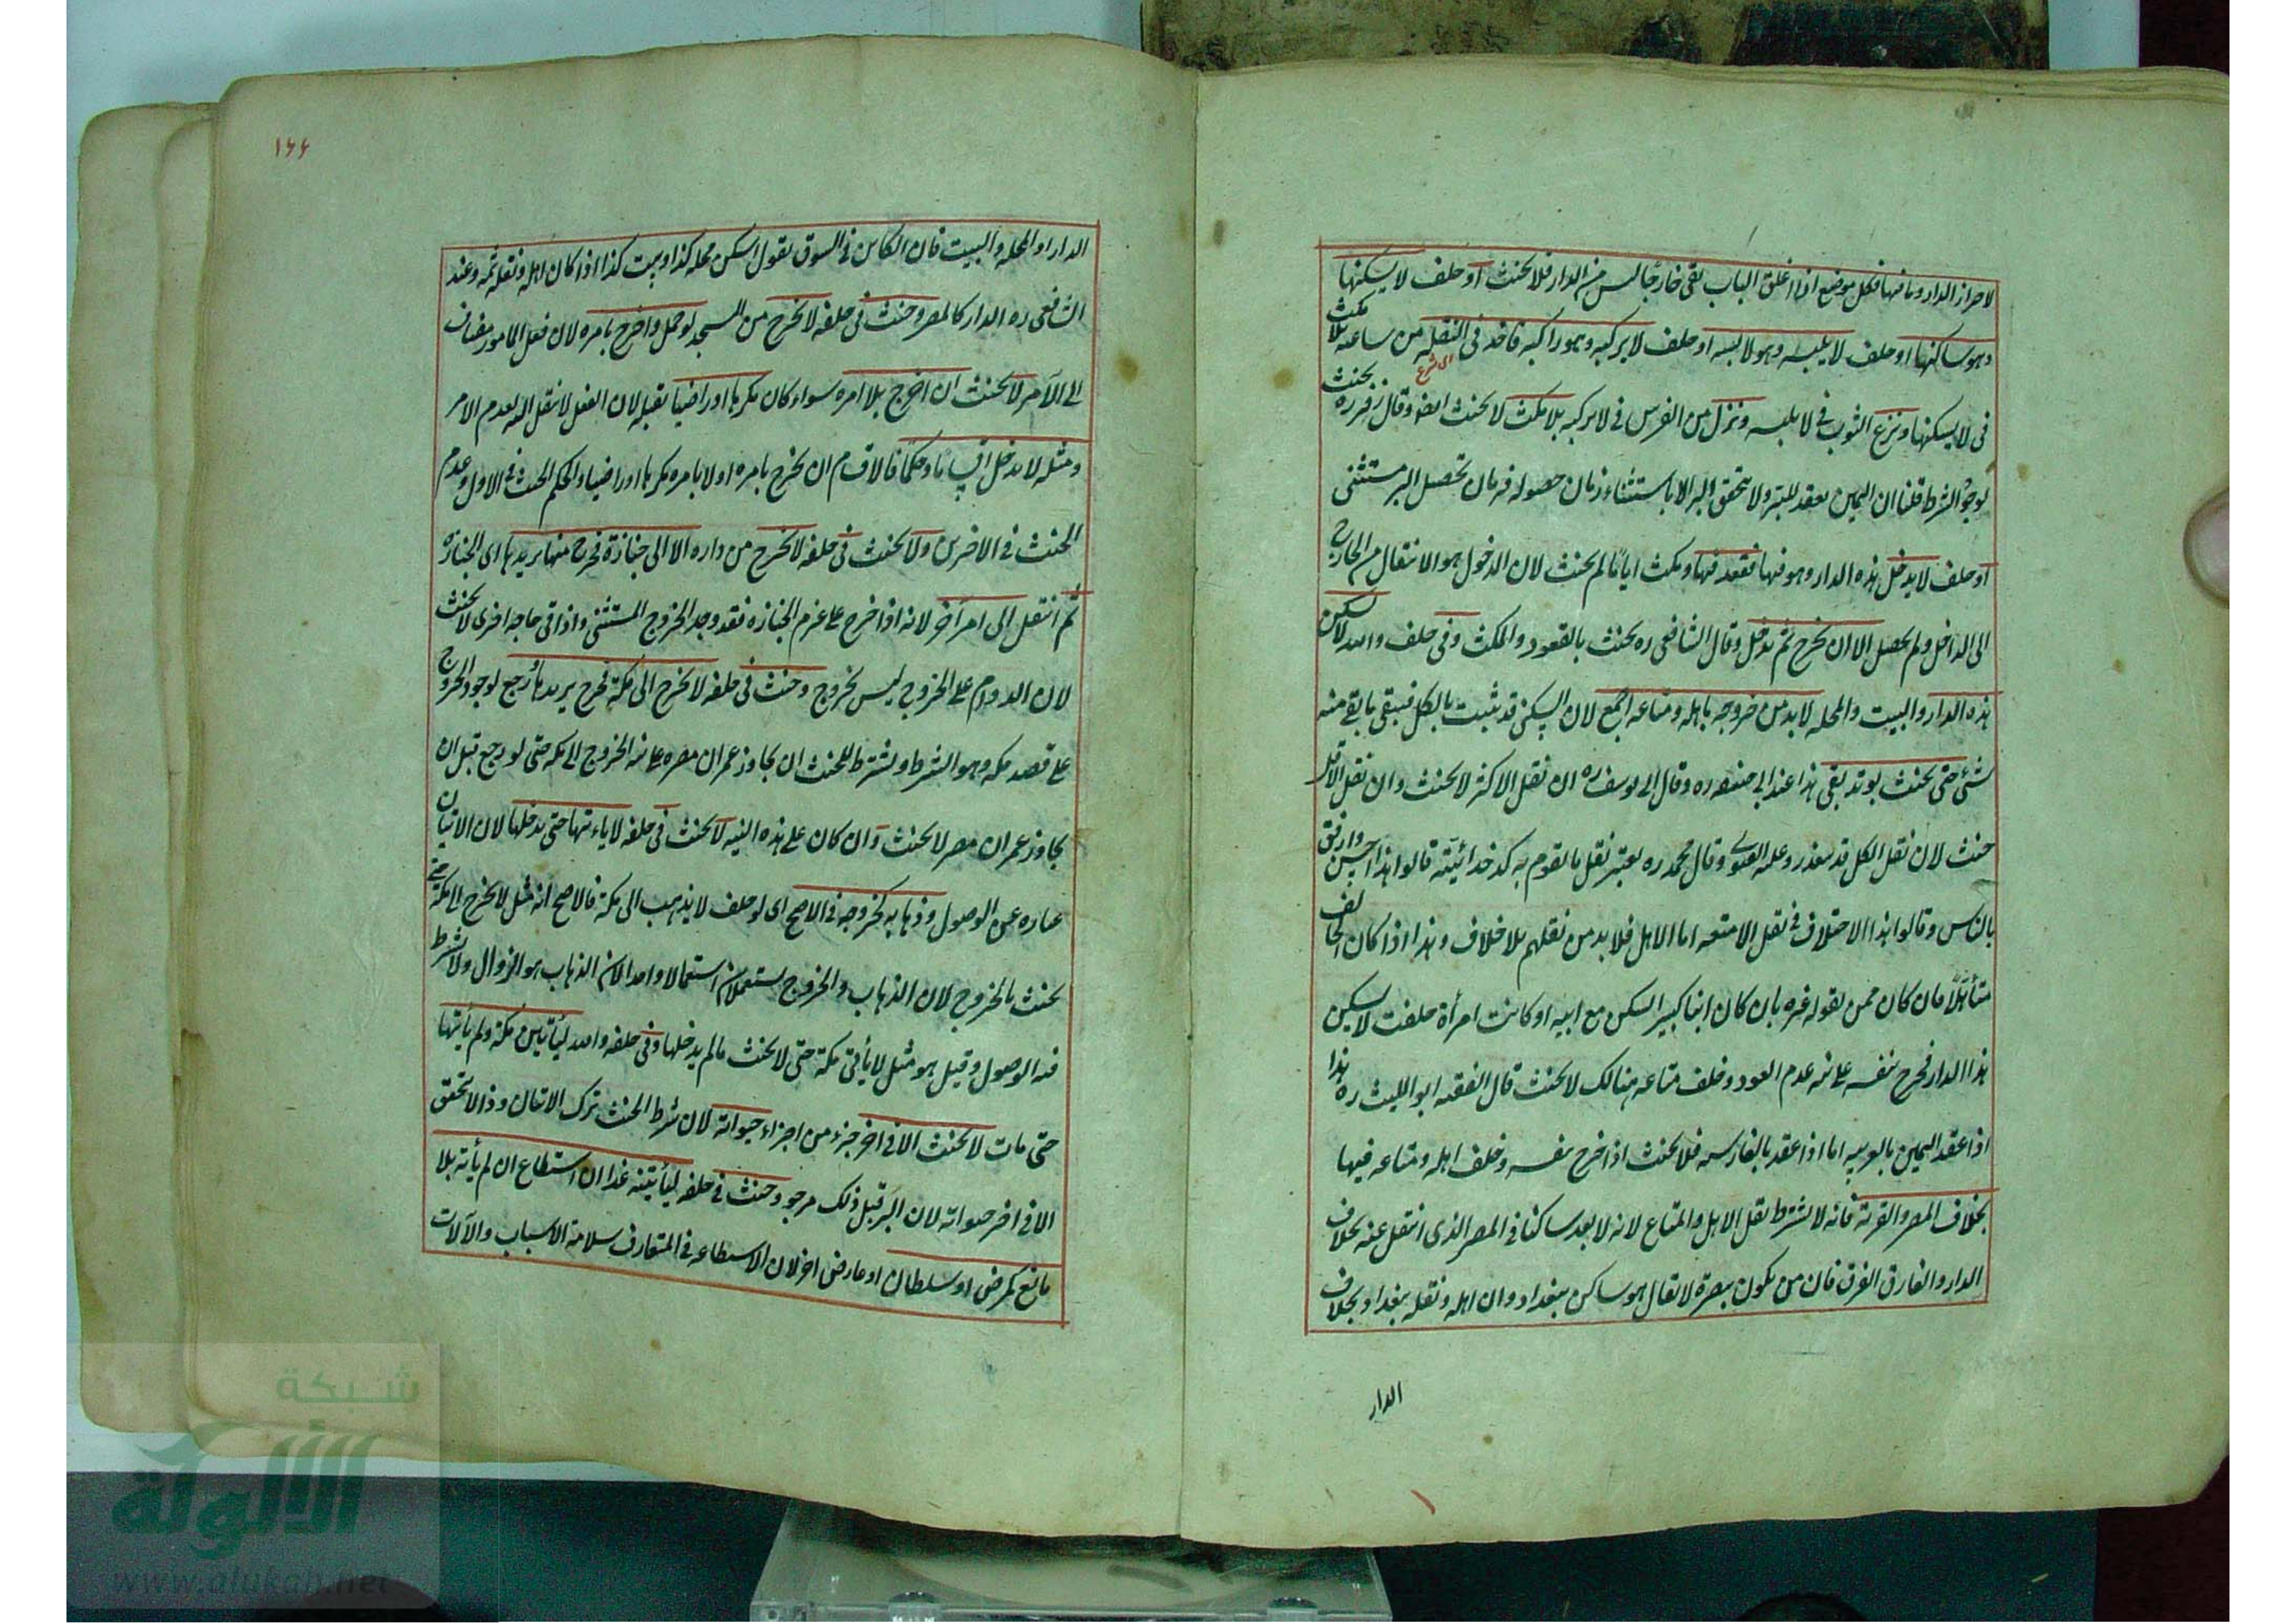 لاحراز الدار وما فيها فكل موضع اذا اغلق الباب بقى خارجا ليس من الدار فلا يحنث او حلف لا يسكنها
وهو ساكنها او حلف لا يلبسه وهو لابسه او حلف لا يركبه وهو راكبه فاخذ في النقلة من ساعته بلا مكث
في لا يسكنها ونزع الثوب في لا يلبسه ونزل من الفرس في لا يركبه بلا مكث لا يحنث ايضا وقال زفر ره يحنث
لوجود الشرط قلنا ان اليمين يعقد للبر ولا يتحقق البر الا باستثناء زمان حصوله فزمان تحصيل البر مستثنى
او حلف لا يدخل هذه الدار وهو فيها فقعد فيها ومكث اياما لم يحنث لان الدخول هو الانتقال من الخارج
الى الداخل ولم يحصل الا ان يخرج ثم يدخل وقال الشافعي ره يحنث بالقعود والمكث وفي حلف والله لا يسكن
هذه الدار والبيت والمحله لابد من خروجه باهله ومتاعه اجمع لان السكنى قد ثبت بالكل فيبقى ما بقي منه
شئ حتى يحنث بوتد بقي هذا عند ابي حنيفه ره وقال ابي يوسف ره ان نقل الاكثر لا يحنث وان نقل الاقل
حنث لان نقل الكل قد يتعذر وعليه الفتوى وقال محمد ره يعتبر نقل ما يقوم به كدخدائيته قالوا هذا احسن وارفق
بالناس وقالوا هذا الاختلاف في نقل الامتعه اما الاهل فلابد من نقلهم بلا خلاف وهذا اذا كان الحالف
متأهلا فان كان ممن يقوله غيره بان كان ابنا كبيرا يسكن مع ابيه او كانت امرأة حلفت لا يسكن
هذا الدار فخرج بنفسه على نيه عدم العود وخلف متاعه هنالك لا يحنث قال الفقيه ابو الليث ره هذا
اذا عقد اليمين بالعربيه اما اذا عقد بالفارسيه فلا يحنث اذا خرج بنفسه وخلف اهله ومتاعه فيها
بخلاف المصر والقرية فانه لا يشترط نقل الاهل والمتاع لانه لا يعد ساكنا في المصر الذي انتقل عنه بخلاف
الدار والفارق العرف فان من يكون ببصرة لا يقال هو ساكن ببغداد وان اهله وثقله ببغداد بخلاف
الدار
١٤٤
الدار او المحله والبيت فان الكاين في السوق يقول اسكن محله كذا وبيت كذا اذا كان اهله وثقله ثمه وعند
الشافعي ره الدار كالمصر وحنث في حلفه لا يخرج من المسجد لو حمل واخرج بامره لان فعل المامور مضاف
الى الآمر لا يحنث ان اخرج بلا امره سواء كان مكرها او راضيا بقلبه لان الفعل لا ينقل اليه لعدم الامر
ومثله لا يدخل اقساما وحكما فالاقسام ان يخرج بامره او لا بامره مكرها او راضيا والحكم الحنث في الاول وعدم
الحنث في الاخرين ولا يحنث في حلفه لا يخرج من داره الا الى جنازة فخرج منها يريدها اى الجنازه
ثم انتقل الى امر آخر لانه اذا خرج على عزم الجنازه فقد وجد الخروج المستثنى واذا اتى حاجه اخرى لا يحنث
لان الدوام على الخروج ليس بخروج وحنث في حلفه لا يخرج الى مكة فخرج يريدها ورجع لوجود الخروج
على قصد مكه وهو الشرط ويشترط للحنث ان يجاوز عمران مصره على نيه الخروج الى مكه حتى لو رجع قبل ان
يجاوز عمران مصر لا يحنث وان كان على هذه النيه لا يحنث في حلفه لا يأتيها حتى يدخلها لان الاتيان
عباره عن الوصول وذهابه كخروجه في الاصح اى لو حلف لا يذهب الى مكة فالاصح انه مثل لا يخرج الى مكة حتى
يحنث بالخروج لان الذهاب والخروج يستعملان استعمالا واحدا لان الذهاب هو الزوال ولا يشترط
فيه الوصول وقيل هو مثل لا يأتي مكة حتى لا يحنث ما لم يدخلها وفي حلفه والله ليأتين مكة ولم يأتها
حتى مات لا يحنث الا في اخر جزء من اجزاء حيوته لان شرط الحنث ترك الاتيان وذا لا يتحقق
الا في اخر حيوته لان البر قبل ذلك مرجو وحنث في حلفه ليأتينه غدا ان استطاع ان لم يأته بلا
مانع كمرض او سلطان او عارض اخر لان الاستطاعه في المتعارف سلامة الاسباب والآلات
شبكة
الألوكة
www.alukah.net